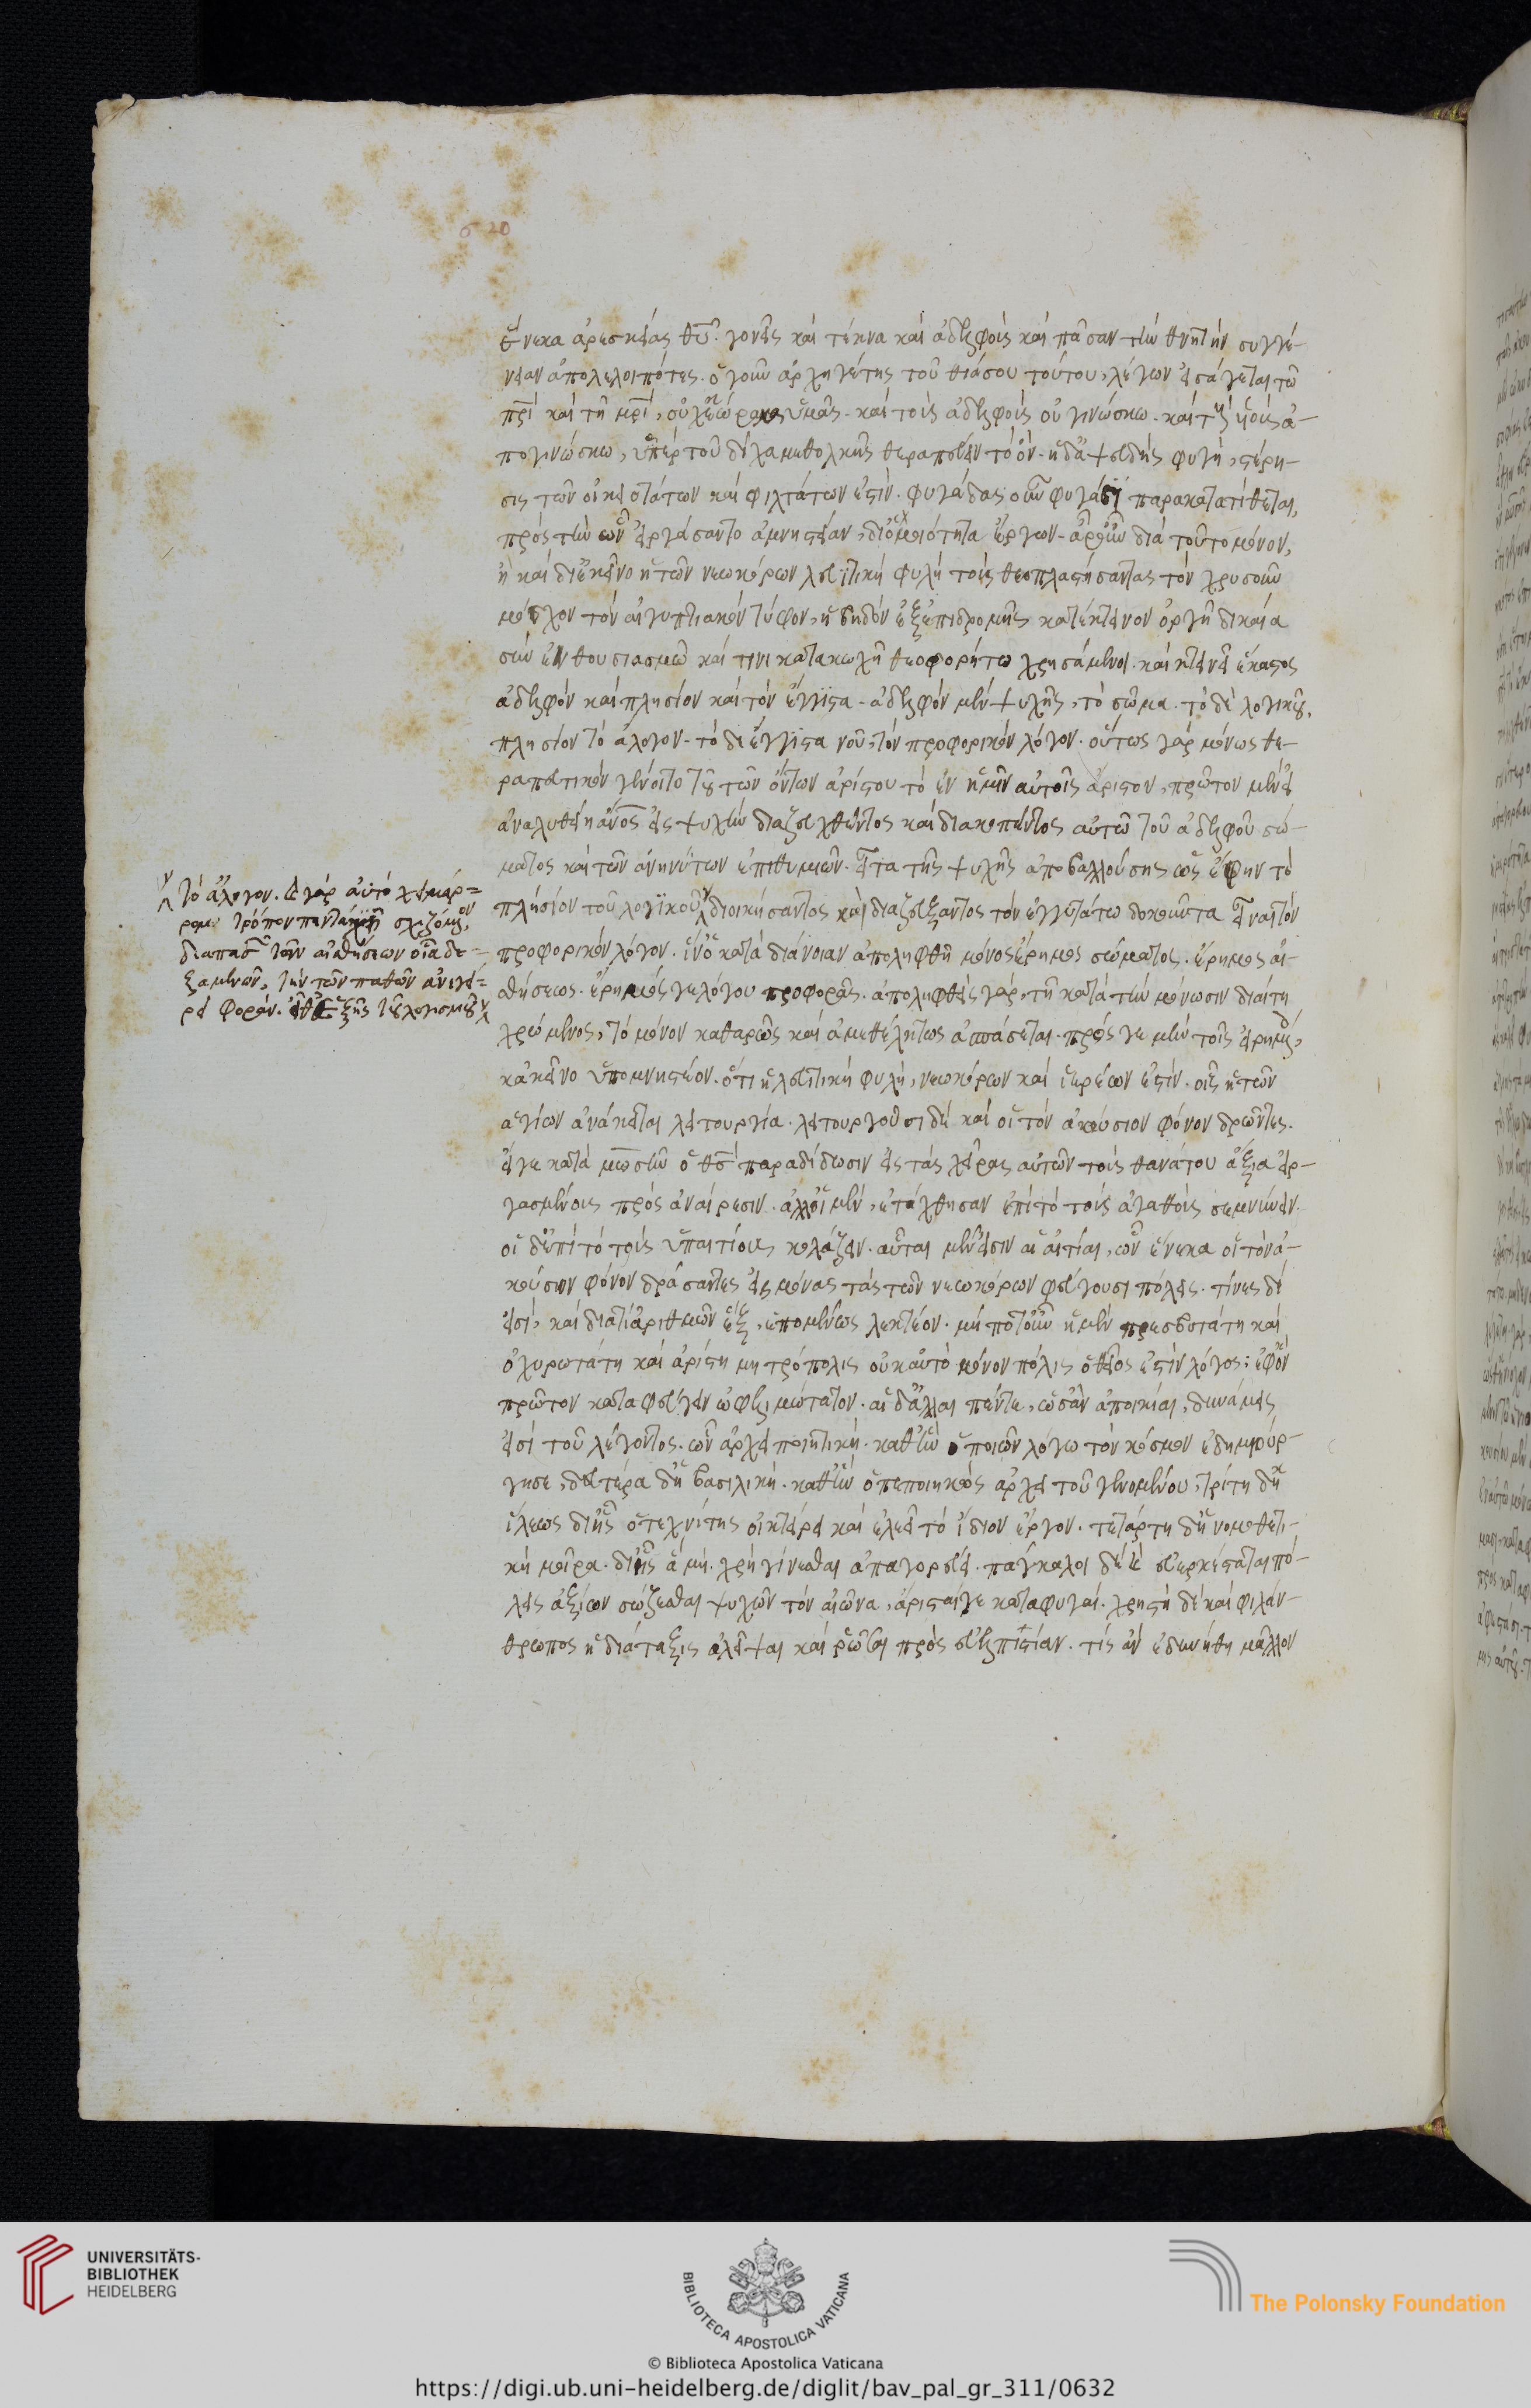 ἕνεκα ἀρεσκείας θῦ. γονεῖς καὶ τέκνα καὶ ἀδελφοὺς καὶ πᾶσαν τὴν θνητὴν συγγέ-
νειαν ἀπολελοιπότες. ὁ γοῦν ἀρχηγέτης τοῦ θιάσου τούτου, λέγων εἰσάγεται τῶ
πρὶ καὶ τῆ μρὶ, οὐχ ἑώρακα ὑμᾶς. καὶ τοὺς ἀδελφοὺς οὐ γινώσκω. καὶ τοὺς υἱοὺς ἀ-
πογινώσκω, ὑπὲρ τοῦ δίχα μεθολκῆς θεραπεύειν τὸ ὄν. ἡ δ' ἀψευδὴς φυγὴ, στέρη-
σις τῶν οἰκειοτάτων καὶ φιλτάτων ἐστίν. φυγάδας οὖν φυγάσι παρακατατίθεται,
πρὸς τὴν ὧν εἰργάσαντο ἀμνηστείαν, δι' ὁμοιότητα ἔργων. ἆρ' οὖν διὰ τοῦτο μόνον,
ἢ καὶ δι' ἐκεῖνο ἡ τῶν νεωκόρων λευϊτικὴ φυλὴ τοὺς θεοπλαστήσαντας τὸν χρυσοῦν
μόσχον τὸν αἰγυπτιακὸν τύφον, ἡβηδὸν ἐξ ἐπιδρομῆς κατέκτεινον ὀργῆ δικαία
σὺν ἐνθουσιασμῶ καὶ τινι κατακωχῆ θεοφορήτω χρησάμενοι. καὶ κτείνει ἕκαστος
ἀδελφὸν καὶ πλησίον καὶ τὸν ἔγγιστα. ἀδελφὸν μὲν ψυχῆς, τὸ σῶμα. τὸ δὲ λογικοῦ,
πλησίον τὸ ἄλογον. τὸ δὲ ἔγγιστα νοῦ, τὸν προφορικὸν λόγον. οὕτως γὰρ μόνως θε-
ραπευτικὸν γένοιτο τοῦ τῶν ὄντων ἀρίστου τὸ ἐν ἡμῖν αὐτοῖς ἄριστον, πρῶτον μὲν εἰ
ἀναλυθείη ἄνος εἰς ψυχὴν διαζευχθέντος καὶ διακοπέντος αὐτῶ τοῦ ἀδελφοῦ σώ-
ματος καὶ τῶν ἀνηνύτων ἐπιθυμιῶν. εἶτα τῆς ψυχῆς ἀποβαλλούσης ὡς ἔφην τὸ
πλησίον τοῦ λογικοῦ διοικήσαντος καὶ διαζεύξαντος τὸν ἐγγυτάτω δοκοῦντα εἶναι τὸν
προφορικὸν λόγον. ἵν' ὁ κατὰ διάνοιαν ἀποληφθῆ μόνος ἔρημος σώματος. ἔρημος αἰ-
σθήσεως. ἔρημος γε λόγου προφορᾶς. ἀποληφθεὶς γὰρ, τῆ κατὰ τὴν μόνωσιν διαίτη
χρώμενος, τὸ μόνον καθαρῶς καὶ ἀμεθέλκτως ἀσπάσεται. πρός γε μὴν τοῖς εἰρημένοις,
κἀκεῖνο ὑπομνηστέον. ὅτι ἡ λευϊτικὴ φυλὴ, νεωκόρων καὶ ἱερέων ἐστίν. οἷς ἡ τῶν
ἁγίων ἀνάκειται λειτουργία. λειτουργοῦσι δὲ καὶ οἱ τὸν ἀκούσιον φόνον δρῶντες.
εἴγε κατὰ μωσῆν ὁ θσ παραδίδωσιν εἰς τὰς χεῖρας αὐτῶν τοὺς θανάτου ἄξια εἰρ-
γασμένους πρὸς ἀναίρεσιν. ἀλλ' οἱ μὲν, ἐτάχθησαν ἐπὶ τὸ τοὺς ἀγαθοὺς σεμνύνειν.
οἱ δ' ἐπὶ τὸ τοὺς ὑπαιτίους κολάζειν. αὗται μὲν εἰσιν αἱ αἰτίαι, ὧν ἕνεκα οἱ τὸν ἀ-
κούσιον φόνον δράσαντες εἰς μόνας τὰς τῶν νεωκόρων φεύγουσι πόλεις. τίνες δέ
εἰσι, καὶ διατὶ ἀριθμῶν ἓξ, ἑπομένως λεκτέον. μήποτ' οὖν ἡ μὲν πρεσβυτάτη καὶ
ὀχυρωτάτη καὶ ἀρίστη μητρόπολις οὐκ αὐτὸ μόνον πόλις ὁ θεῖος ἐστὶν λόγος; ἐφ' ὃν
πρῶτον καταφεύγειν ὠφελιμώτατον. αἱ δ' ἄλλαι πέντε, ὡσὰν ἀποικίαι, δυνάμεις
εἰσὶ τοῦ λέγοντος. ὧν ἄρχει ποιητικὴ. καθ' ἣν ὁ ποιῶν λόγω τὸν κόσμον ἐδημιούρ-
γησε, δευτέρα δ' ἡ βασιλικὴ. καθ' ἣν ὁ πεποιηκὼς ἄρχει τοῦ γενομένου, τρίτη δ' ἡ
ἵλεως δι' ἧς ὁ τεχνίτης οἰκτείρει καὶ ἐλεεῖ τὸ ἴδιον ἔργον. τετάρτη δ' ἡ νομοθετι-
κὴ μοῖρα. δι' ἧς ἃ μὴ χρὴ γίνεσθαι ἀπαγορεύει. πάγκαλοι δὲ καὶ εὐερκέσταται πό-
λεις ἀξίων σώζεσθαι ψυχῶν τὸν αἰῶνα, ἄρισταί γε καταφυγαὶ. χρηστὴ δὲ καὶ φιλάν-
θρωπος ἡ διάταξις ἀλεῖψαι καὶ ῥῶσαι πρὸς εὐελπιστίαν. τίς ἂν ἐδυνήθη μᾶλλον
τὸ ἄλογον. εἰ γὰρ αὐτὸ χειμάρ-
ρου τρόπον πενταχῆ σχιζόμενον,
διαπασῶν τῶν αἰσθήσεων οἷα δε-
ξαμενῶν, τὴν τῶν παθῶν ἀνεγεί-
ρει φοράν. εἶθ' ἑξῆς τοῦ λογισμοῦ
UNIVERSITÄTS-
BIBLIOTHEK
HEIDELBERG
BIBLIOTECA APOSTOLICA VATICANA
The Polonsky Foundation
© Biblioteca Apostolica Vaticana
https://digi.ub.uni-heidelberg.de/diglit/bav_pal_gr_311/0632